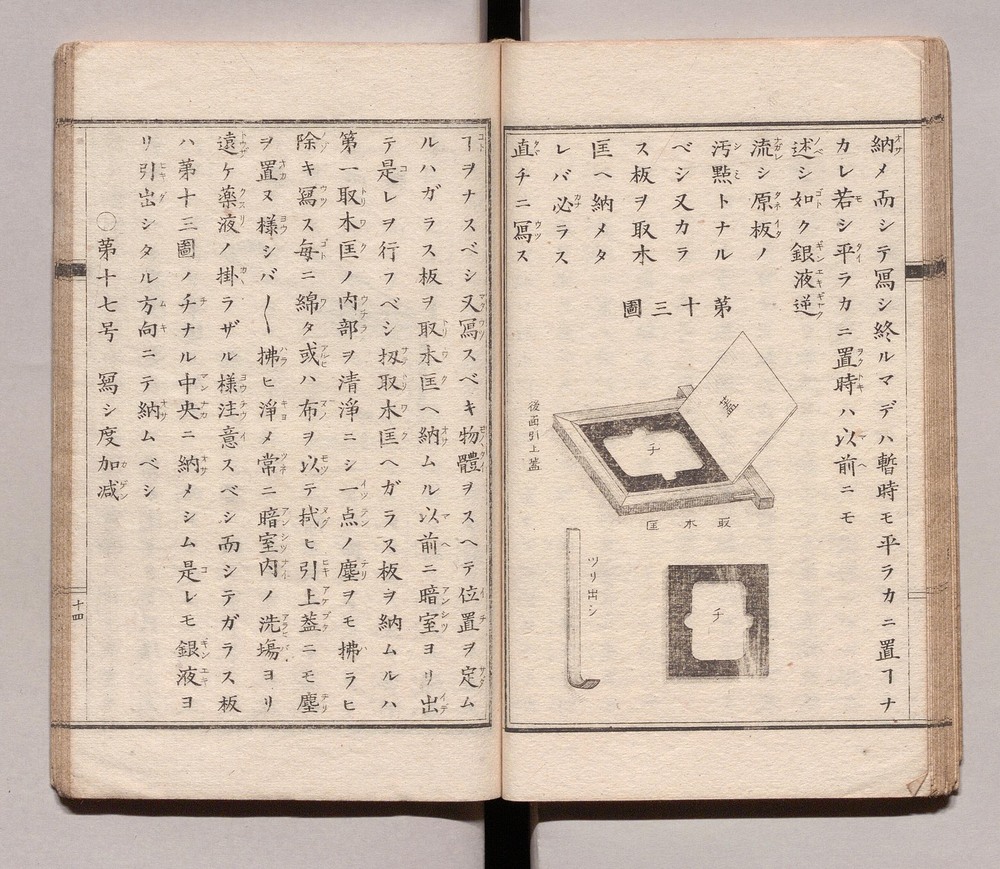 納メ而シテ冩シ終ルマデハ暫時モ平ラカニ置ヿナ
カレ若シ平ラカニ置時ハ以前ニモ
述シ如ク銀液逆
流シ原板ノ
汚點トナル
ベシ又カラ
ス板ヲ取木
匡ヘ納メタ
レバ必ラス
直チニ冩ス
第十三圖
蓋
チ
後面引上蓋
取木匡
ツリ出シ
チ
ヿヲナスベシ又冩スベキ物體ヲスヘテ位置ヲ定ム
ルハガラス板ヲ取木匡ヘ納ムル以前ニ暗室ヨリ出
テ是レヲ行フベシ扨取木匡ヘガラス板ヲ納ムルハ
第一取木匡ノ内部ヲ清淨ニシ一点ノ塵ヲモ拂ラヒ
除キ冩ス毎ニ綿タ或ハ布ヲ以テ拭ヒ引上蓋ニモ塵
ヲ置ヌ様シバ〱拂ヒ淨メ常ニ暗室内ノ洗塲ヨリ
遠ケ藥液ノ掛ラザル様注意スベシ而シテガラス板
ハ第十三圖ノチナル中央ニ納メシム是レモ銀液ヨ
リ引出シタル方向ニテ納ムベシ
○第十七号 冩シ度加減
十四